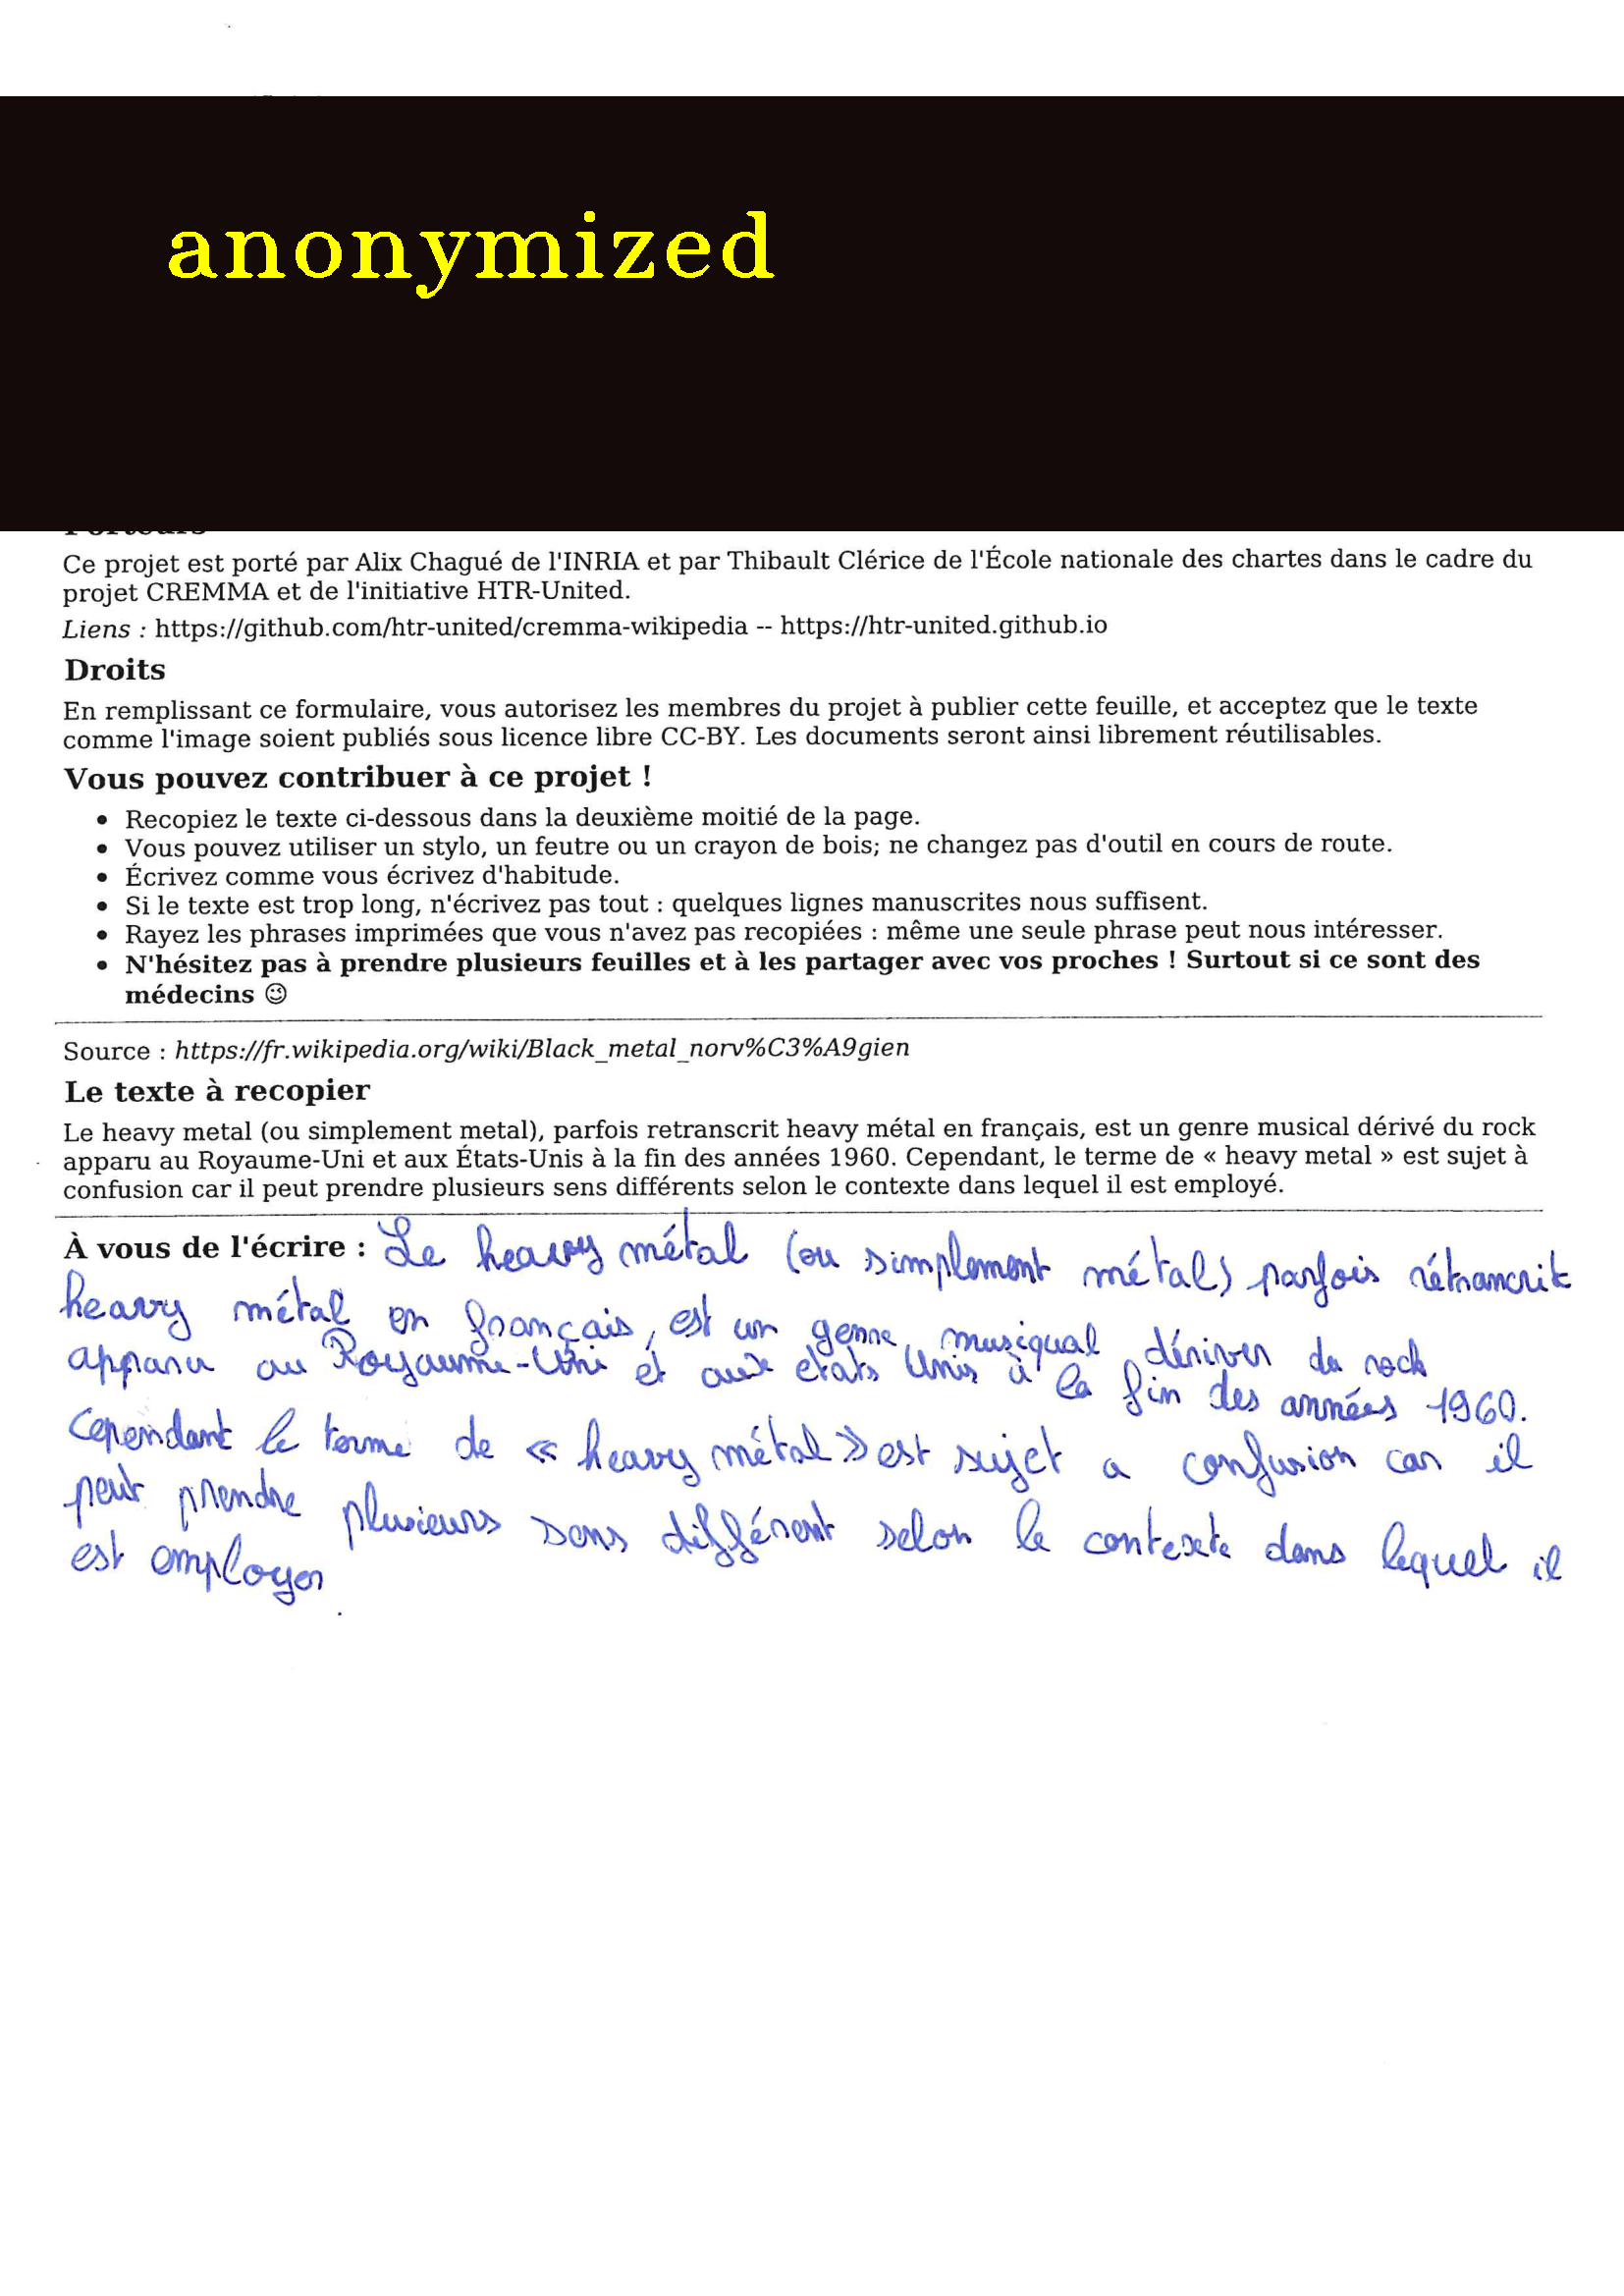 anonymized
Ce projet est porté par Alix Chagué de l'INRIA et par Thibault Clérice de l'École nationale des chartes dans le cadre du
projet CREMMA et de l'initiative HTR-United.
Liens : https://github.com/htr-united/cremma-wikipedia -- https://htr-united.github.io
Droits
En remplissant ce formulaire, vous autorisez les membres du projet à publier cette feuille, et acceptez que le texte
comme l'image soient publiés sous licence libre CC-BY. Les documents seront ainsi librement réutilisables.
Vous pouvez contribuer à ce projet !
• Recopiez le texte ci-dessous dans la deuxième moitié de la page.
• Vous pouvez utiliser un stylo, un feutre ou un crayon de bois; ne changez pas d'outil en cours de route.
• Écrivez comme vous écrivez d'habitude.
• Si le texte est trop long, n'écrivez pas tout : quelques lignes manuscrites nous suffisent.
• Rayez les phrases imprimées que vous n'avez pas recopiées : même une seule phrase peut nous intéresser.
• N'hésitez pas à prendre plusieurs feuilles et à les partager avec vos proches ! Surtout si ce sont des
médecins 😉
Source : https://fr.wikipedia.org/wiki/Black_metal_norv%C3%A9gien
Le texte à recopier
Le heavy metal (ou simplement metal), parfois retranscrit heavy métal en français, est un genre musical dérivé du rock
apparu au Royaume-Uni et aux États-Unis à la fin des années 1960. Cependant, le terme de « heavy metal » est sujet à
confusion car il peut prendre plusieurs sens différents selon le contexte dans lequel il est employé.
À vous de l'écrire : Le heavy métal (ou simplement métal) parfois rétrancrit
heavy métal en français, est un genre musiqual dériver du rock
apparu au Royaume-Uni et aux etats Unis à la fin des années 1960.
Cependant le terme de « heavy métal » est sujet a confusion car il
peut prendre plusieurs sens différent selon le contexte dans lequel il
est employer.